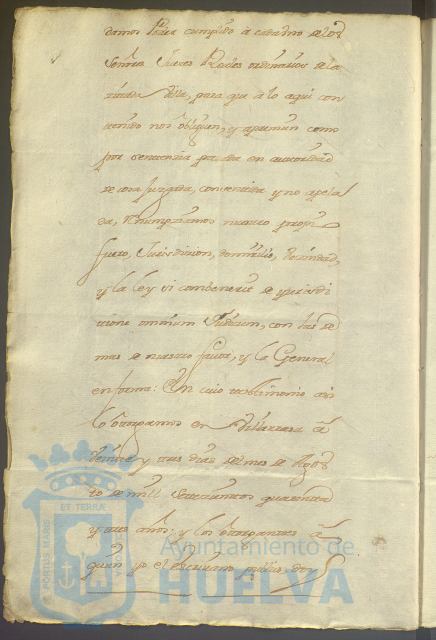 damos Poder cumplido a cada uno de los
Señores Jueces Reales ordinarios de la
villa, para que a lo aqui con
tenido nos obliguen, y apremien como
por sentencia pasada en autoridad
de cosa juzgada, consentida y no apela
da, Renunziamos nuestro propio
fuero, Jurisdicion, domicilio, vezindad,
y la ley si combenerit de yurisdi
tione omnium Judicum, con las de
mas de nuestro favor, y la General
en forma: En cuio testimonio assi
lo otorgamos en Villarrasa a
veinte y tres dias del mes de Agos
to de mill setecientos quarenta
y años; y los otorgantes a
quien yo el escribano publico doy
Ayuntamiento de
HUELVA
PORTUS MARIS
ET TERRÆ